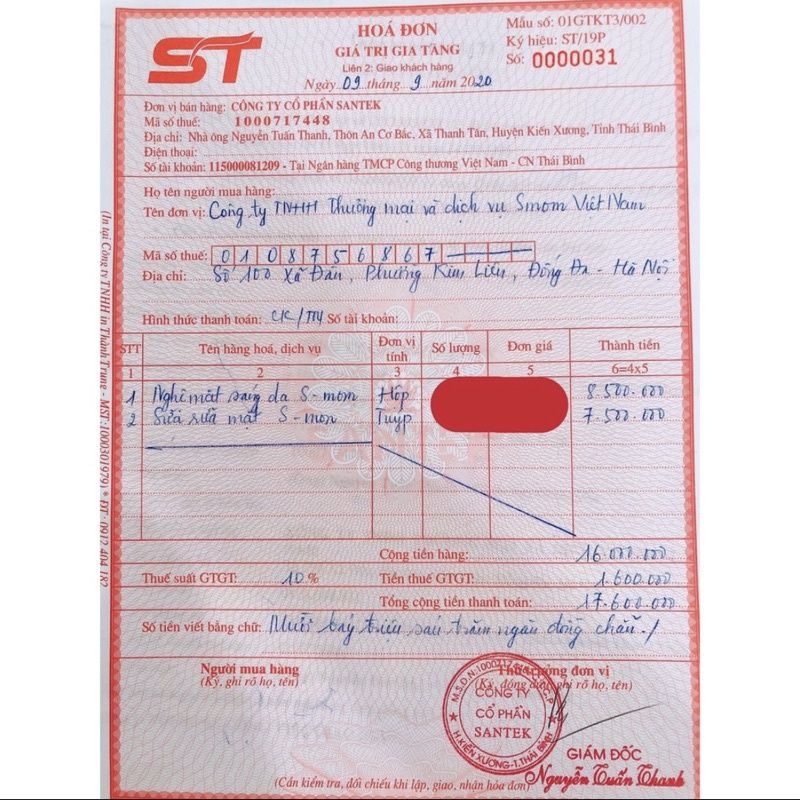 ST
HOÁ ĐƠN
GIÁ TRỊ GIA TĂNG
Liên 2: Giao khách hàng
Ngày 09 tháng 9 năm 2020
Mẫu số: 01GTKT3/002
Ký hiệu: ST/19P
Số: 0000031
Đơn vị bán hàng: CÔNG TY CỔ PHẦN SANTEK
Mã số thuế: 1000717448
Địa chỉ: Nhà ông Nguyễn Tuấn Thanh, Thôn An Cơ Bắc, Xã Thanh Tân, Huyện Kiến Xương, Tỉnh Thái Bình
Điện thoại:
Số tài khoản: 115000081209 - Tại Ngân hàng TMCP Công thương Việt Nam - CN Thái Bình
Họ tên người mua hàng:
Tên đơn vị: Công ty TNHH Thương mại và dịch vụ Smom Việt Nam
Mã số thuế: 0108756867
Địa chỉ: Số 100 Xã Đàn, Phường Kim Liên, Đống Đa - Hà Nội
Hình thức thanh toán: CK/TM Số tài khoản:
STT Tên hàng hoá, dịch vụ Đơn vị tính Số lượng Đơn giá Thành tiền
1 2 3 4 5 6=4x5
1 Nghệ mật sáng da S-mom Hộp 8.500.000
2 Sữa rửa mặt S-mom Tuýp 7.500.000
Cộng tiền hàng: 16.000.000
Thuế suất GTGT: 10% Tiền thuế GTGT: 1.600.000
Tổng cộng tiền thanh toán: 17.600.000
Số tiền viết bằng chữ: Mười bảy triệu sáu trăm ngàn đồng chẵn./
Người mua hàng
(Ký, ghi rõ họ, tên)
Thủ trưởng đơn vị
(Ký, đóng dấu, ghi rõ họ, tên)
CÔNG TY
CỔ PHẦN
SANTEK
H.KIẾN XƯƠNG-T.THÁI BÌNH
GIÁM ĐỐC
Nguyễn Tuấn Thanh
(Cần kiểm tra, đối chiếu khi lập, giao, nhận hóa đơn)
(In tại Công ty TNHH in Thành Trung - MST: 1000301979) * ĐT: 0912 404 182